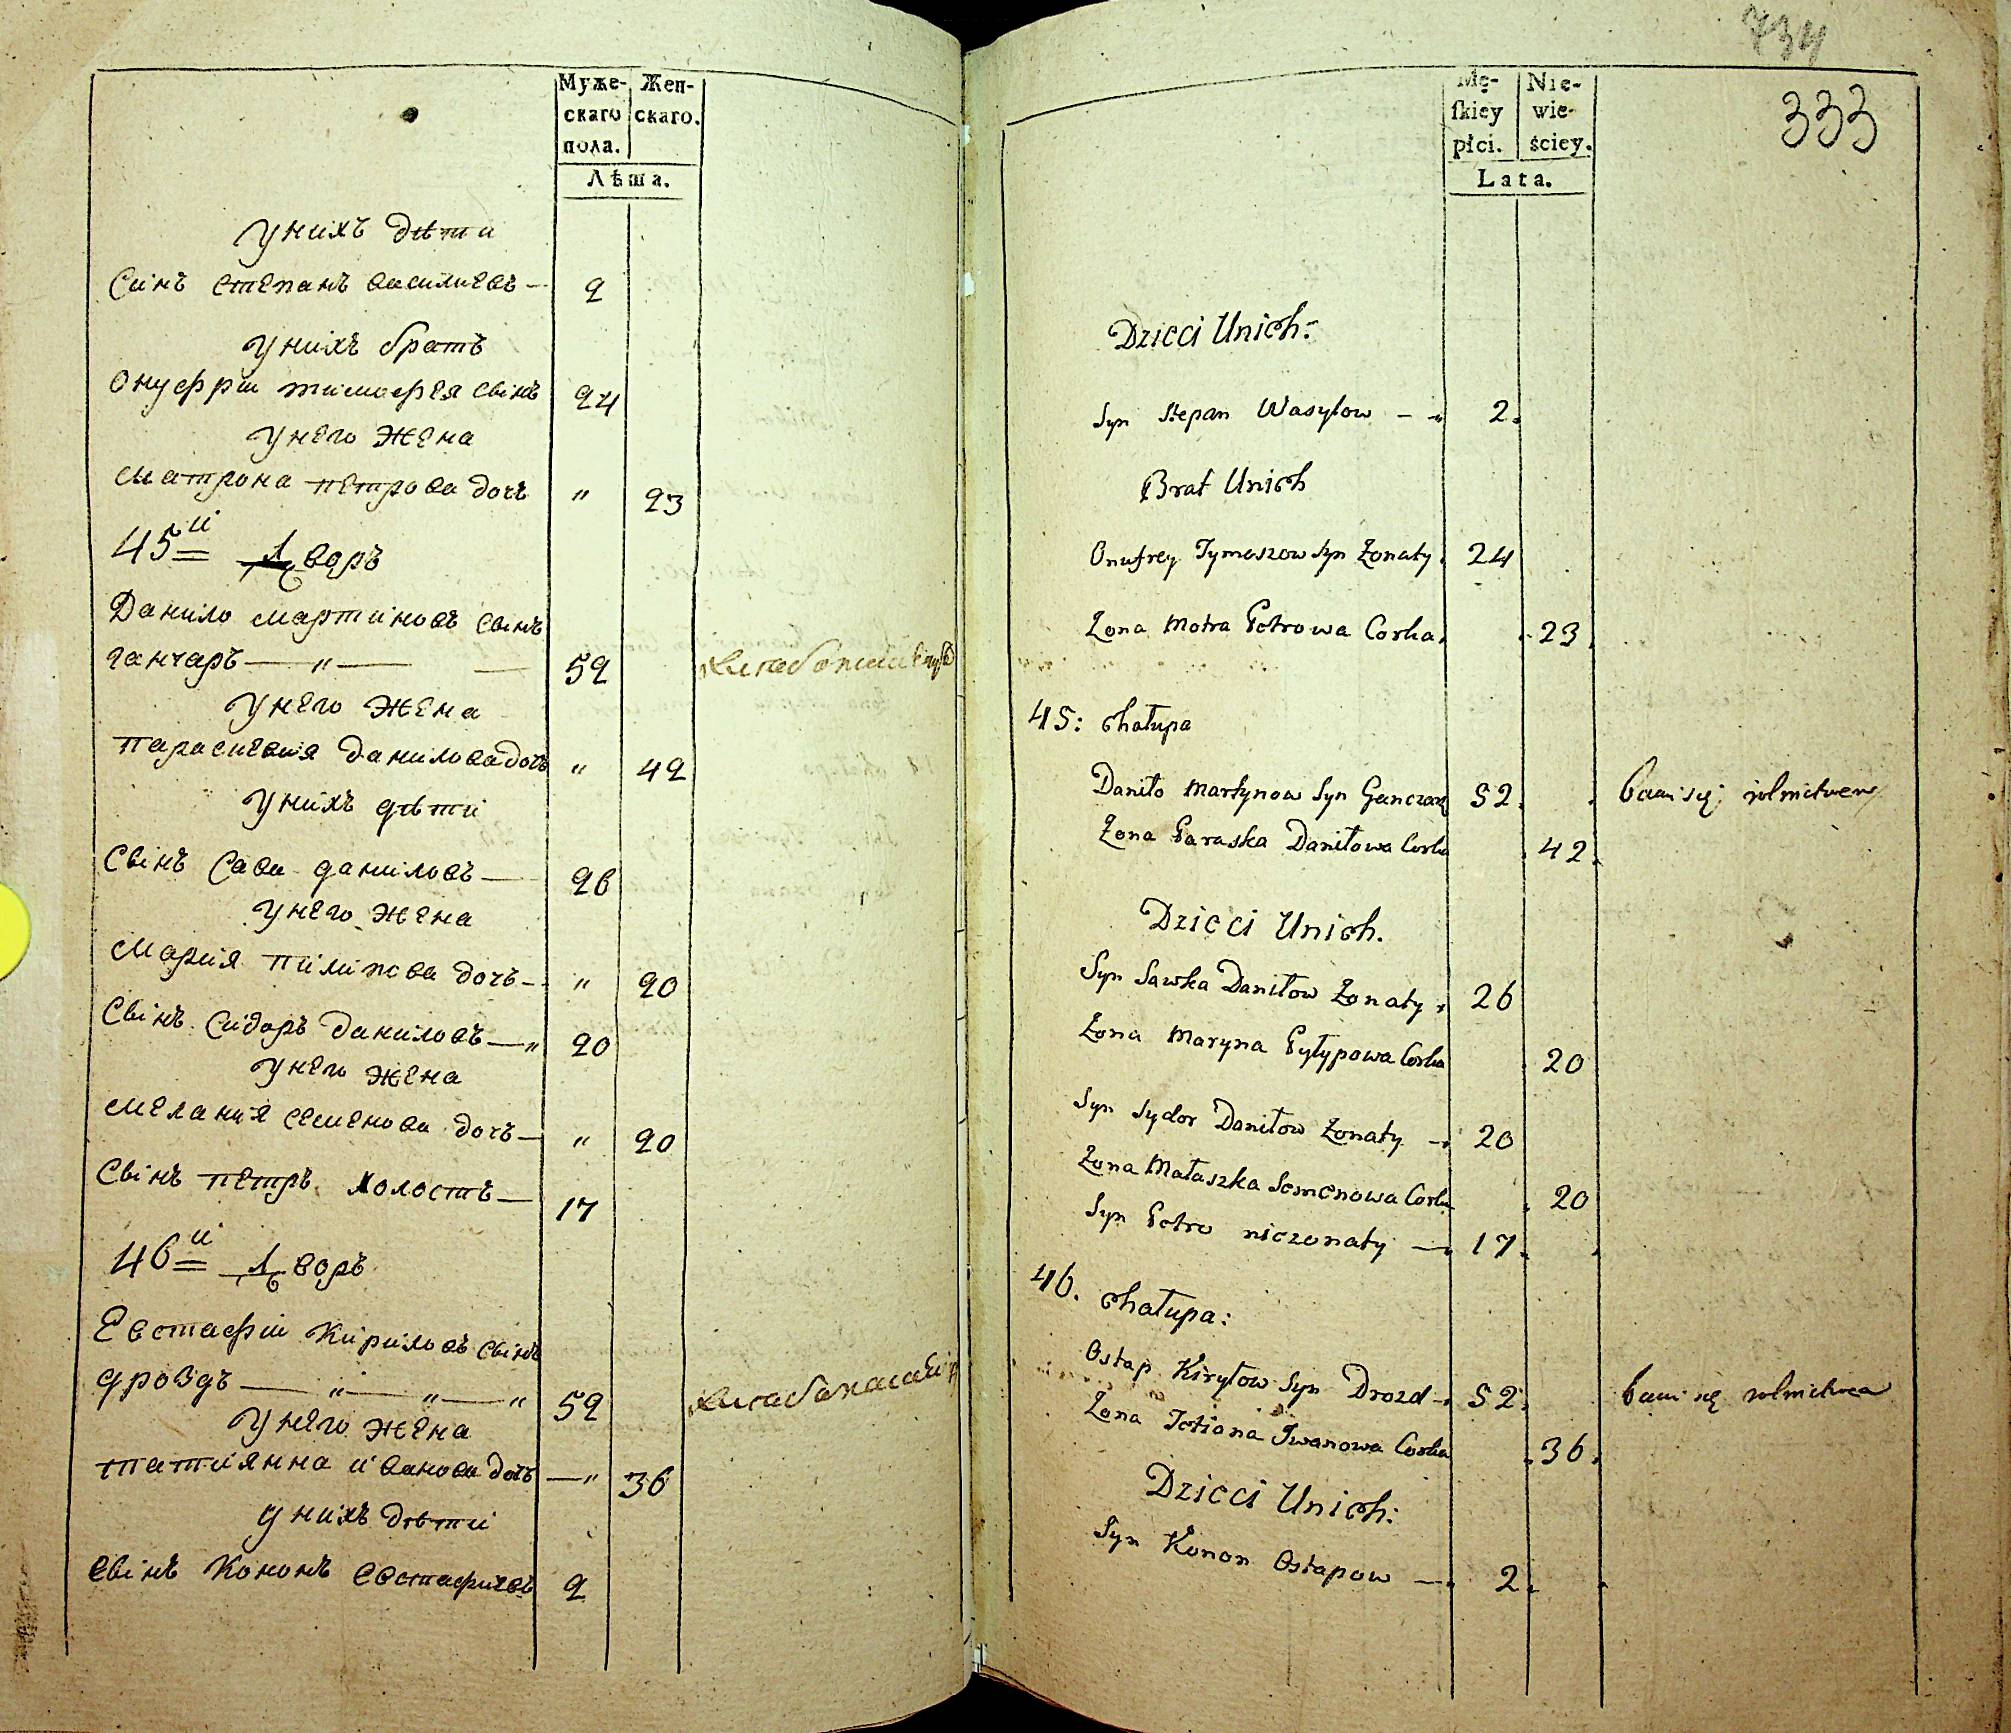 Муже-
скаго
пола.
Жен-
скаго.
Лѣта.
У нихъ дѣти
Синъ Степанъ Василиевъ — 2
У нихъ братъ
Онуфрии Тимофея Свінъ 24
У него жена
Матрона Петрова дочь " 23
45й Дворъ
Данило Мартиновъ Свінъ
Ганчаръ — " — — 52
У него жена
Парасиевия Данилова дочь " 42
У нихъ дѣти
Свінъ Сава Даниловъ — 26
У него жена
Мария Пилипова дочь — " 20
Свінъ Сидоръ Даниловъ — " 20
У него жена
Мелания Семенова дочь — " 20
Свінъ Петръ холостъ — 17
46й Дворъ
Евстафии Кириловъ Свінъ
Дроздъ — " — " — " 52
У него жена
Татиянна Иванова дочь — " 36
У нихъ дѣти
Свінъ Кононъ Евстафиевъ 2
734
333
Mę-
ſkiey
płci.
Nie-
wie-
ściey.
Lata.
Dzieci Unich:
Syn Stepan Wasylow — 2.
Brat Unich
Onufrey Tymoszow Syn Żonaty. 24
Żona Motra Petrowa Corka. 23.
45: Chałupa
Daniło Martynow Syn Ganczarz 52. bawi się rolnictwem
Żona Paraska Daniłowa Corka 42.
Dzieci Unich.
Syn Sawka Daniłow Żonaty. 26
Żona Maryna Pyłypowa Corka 20
Syn Sydor Daniłow Żonaty — 20
Żona Małaszka Semenowa Corka 20
Syn Petro nieżonaty — 17.
46. Chałupa:
Ostap Kiryłow Syn Drozd — 52. bawi się rolnictwem
Żona Tetiana Iwanowa Corka 36.
Dzieci Unich:
Syn Konon Ostapow — 2.